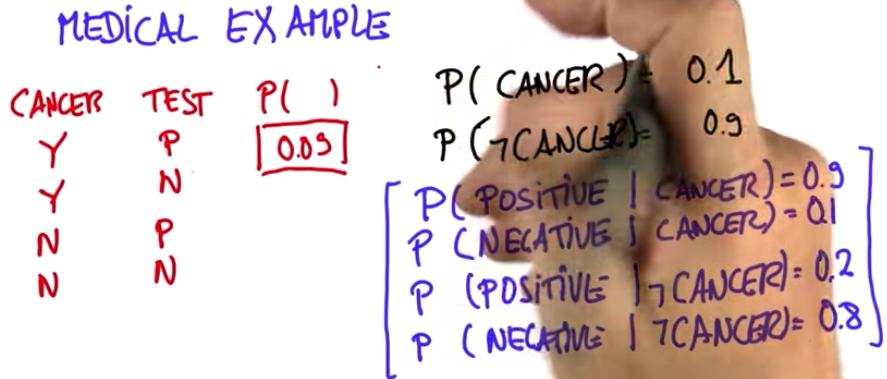 MEDICAL EXAMPLE
CANCER TEST P( )
Y P 0.09
Y N
N P
N N
P(CANCER) = 0.1
P(¬CANCER)= 0.9
P(POSITIVE | CANCER) = 0.9
P(NEGATIVE | CANCER) = 0.1
P(POSITIVE | ¬CANCER) = 0.2
P(NEGATIVE | ¬CANCER) = 0.8